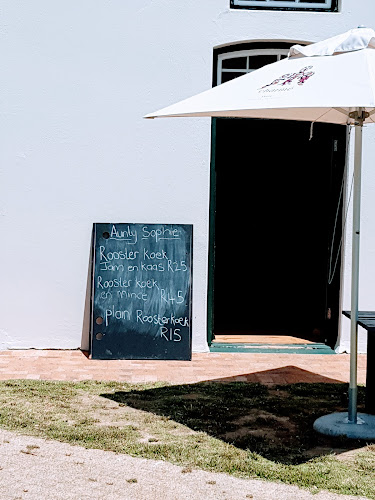 Aunty Sophie
Rooster koek
Jam en kaas R25
Rooster koek
en mince R45
plain Roosterkoek
R15